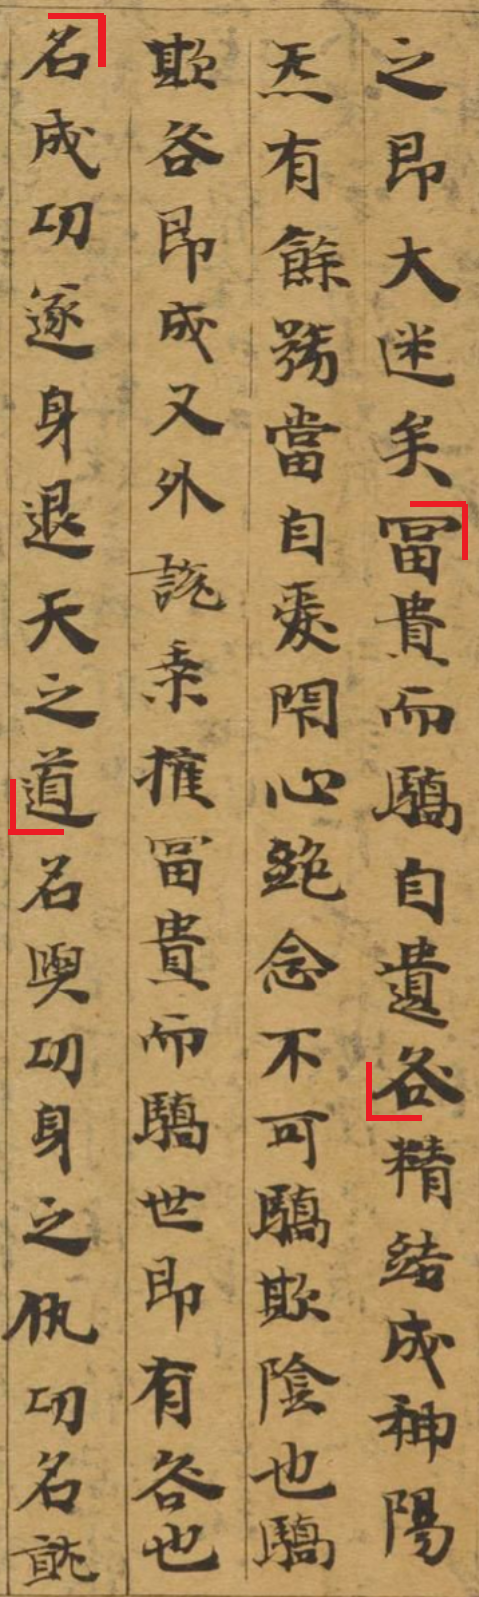 之即大迷矣冨貴而驕自遺咎精結成神陽
炁有餘務當自愛閇心絶念不可驕欺陰也驕
欺咎即成又外說秉權冨貴而驕世即有咎也
名成功遂身退天之道名與功身之仇功名就